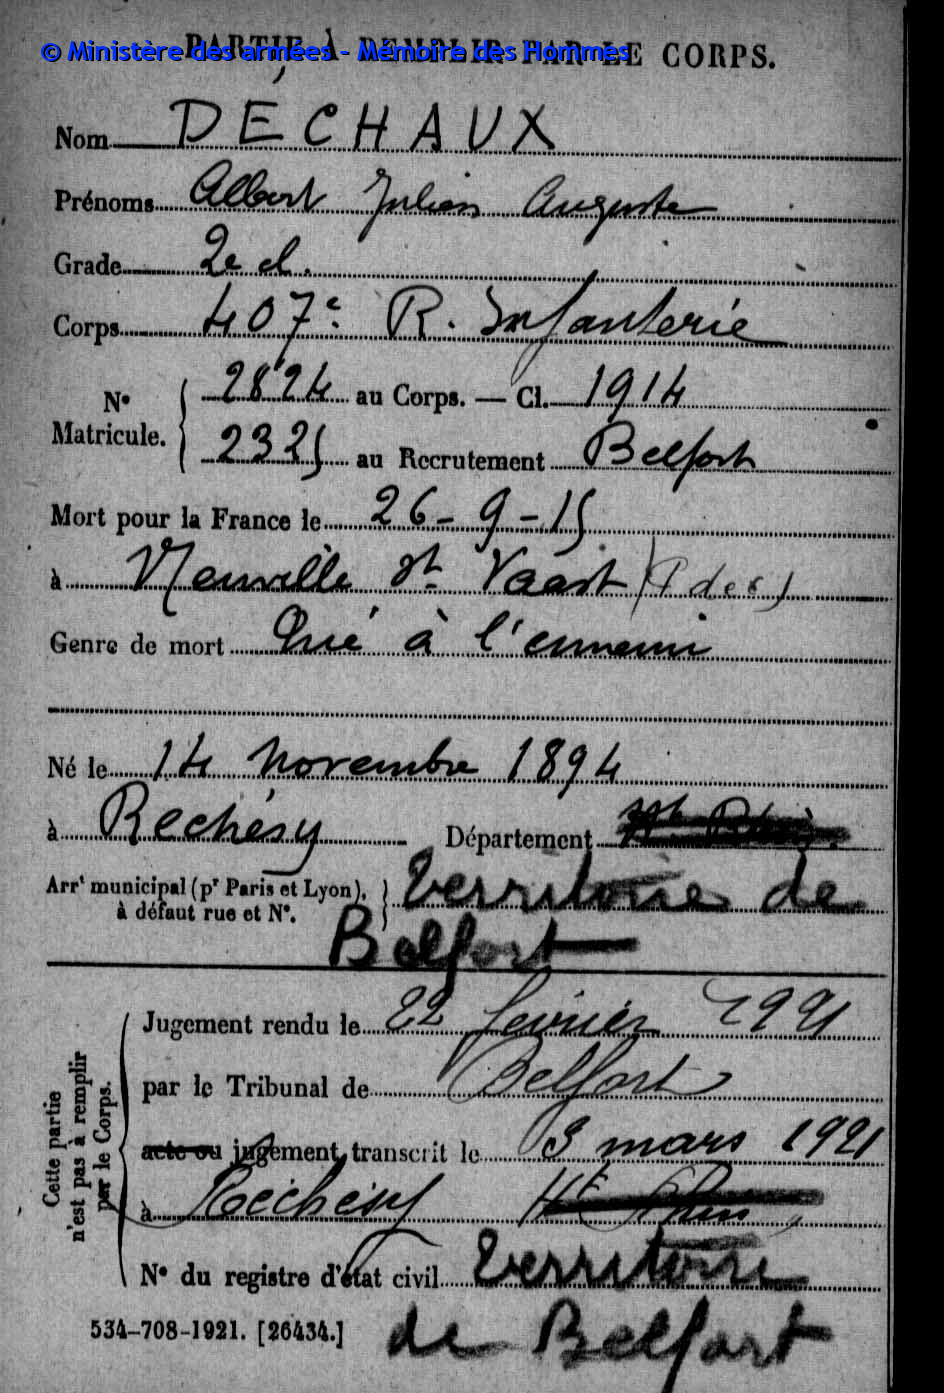 PARTIE À REMPLIR PAR LE CORPS.
© Ministère des armées - Mémoire des Hommes
Nom DÉCHAUX
Prénoms Albert Julien Auguste
Grade 2e cl.
Corps 407e R. Infanterie
N° Matricule. 2824 au Corps. — Cl. 1914
2325 au Recrutement Belfort
Mort pour la France le 26-9-15
à Neuville St Vaast (P de C)
Genre de mort Tué à l'ennemi
Né le 14 novembre 1894
à Réchésy Département Ht Rhin.
Arrt municipal (pr Paris et Lyon), à défaut rue et N°. Territoire de
Belfort
Cette partie n'est pas à remplir par le Corps.
Jugement rendu le 22 février 1921
par le Tribunal de Belfort
acte ou jugement transcrit le 3 mars 1921
à Réchésy Ht Rhin
N° du registre d'état civil Territoire
534-708-1921. [26434.] de Belfort